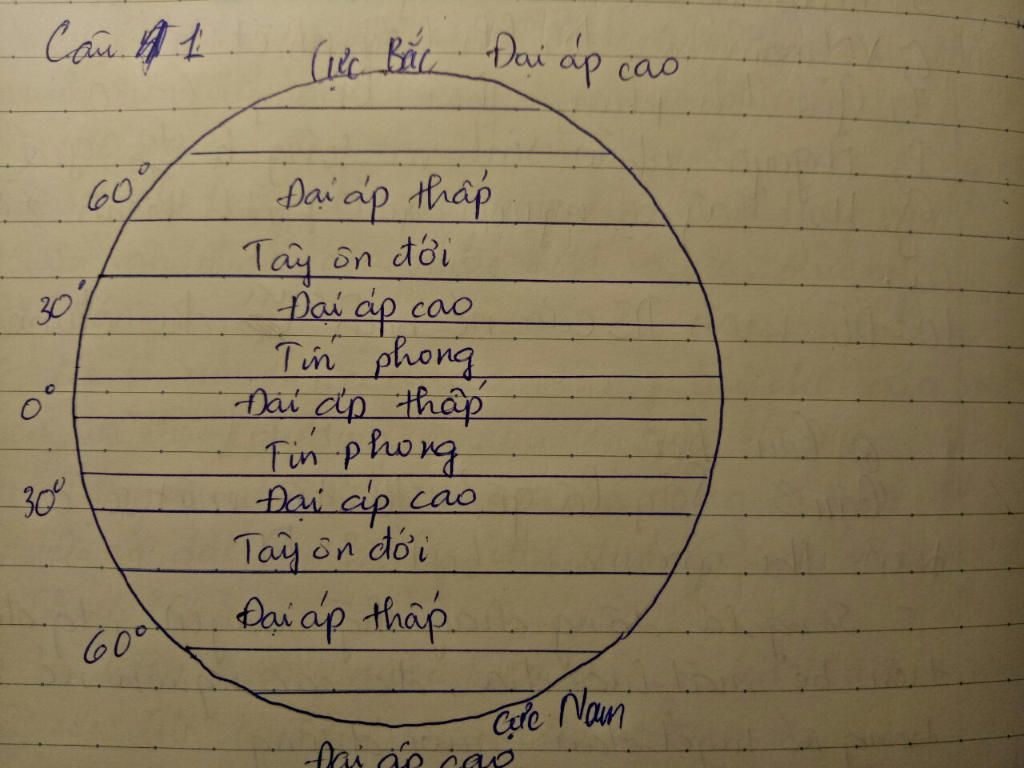 Câu 1:
Cực Bắc Đại áp cao
60° Đại áp thấp
Tây ôn đới
30° Đại áp cao
Tín phong
0° Đai áp thấp
Tín phong
30° Đại áp cao
Tây ôn đới
Đại áp thấp
60°
Cực Nam
Đai áp cao